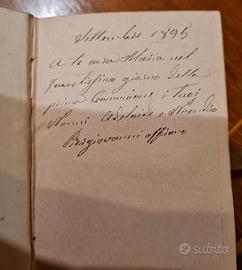 Settembre 1895
A te cara Maria nel
faustissimo giorno della
prima Comunione i tuoi
Nonni Adelaide e
Bergiovanni offrono
subito